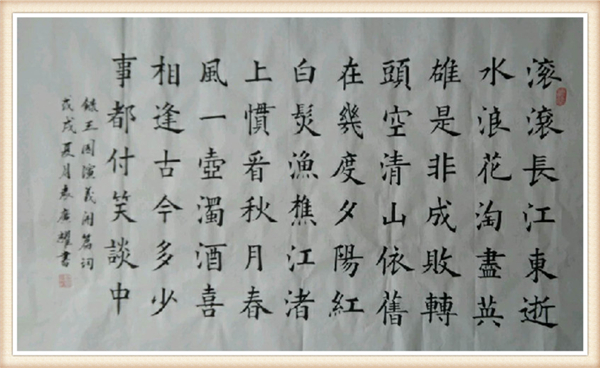 滚滚長江東逝
水浪花淘盡英
雄是非成敗轉
頭空清山依舊
在幾度夕陽紅
白髮漁樵江渚
上慣看秋月春
風一壺濁酒喜
相逢古今多少
事都付笑談中
錄三國演義開篇詞
戊戌夏月袁廣耀書